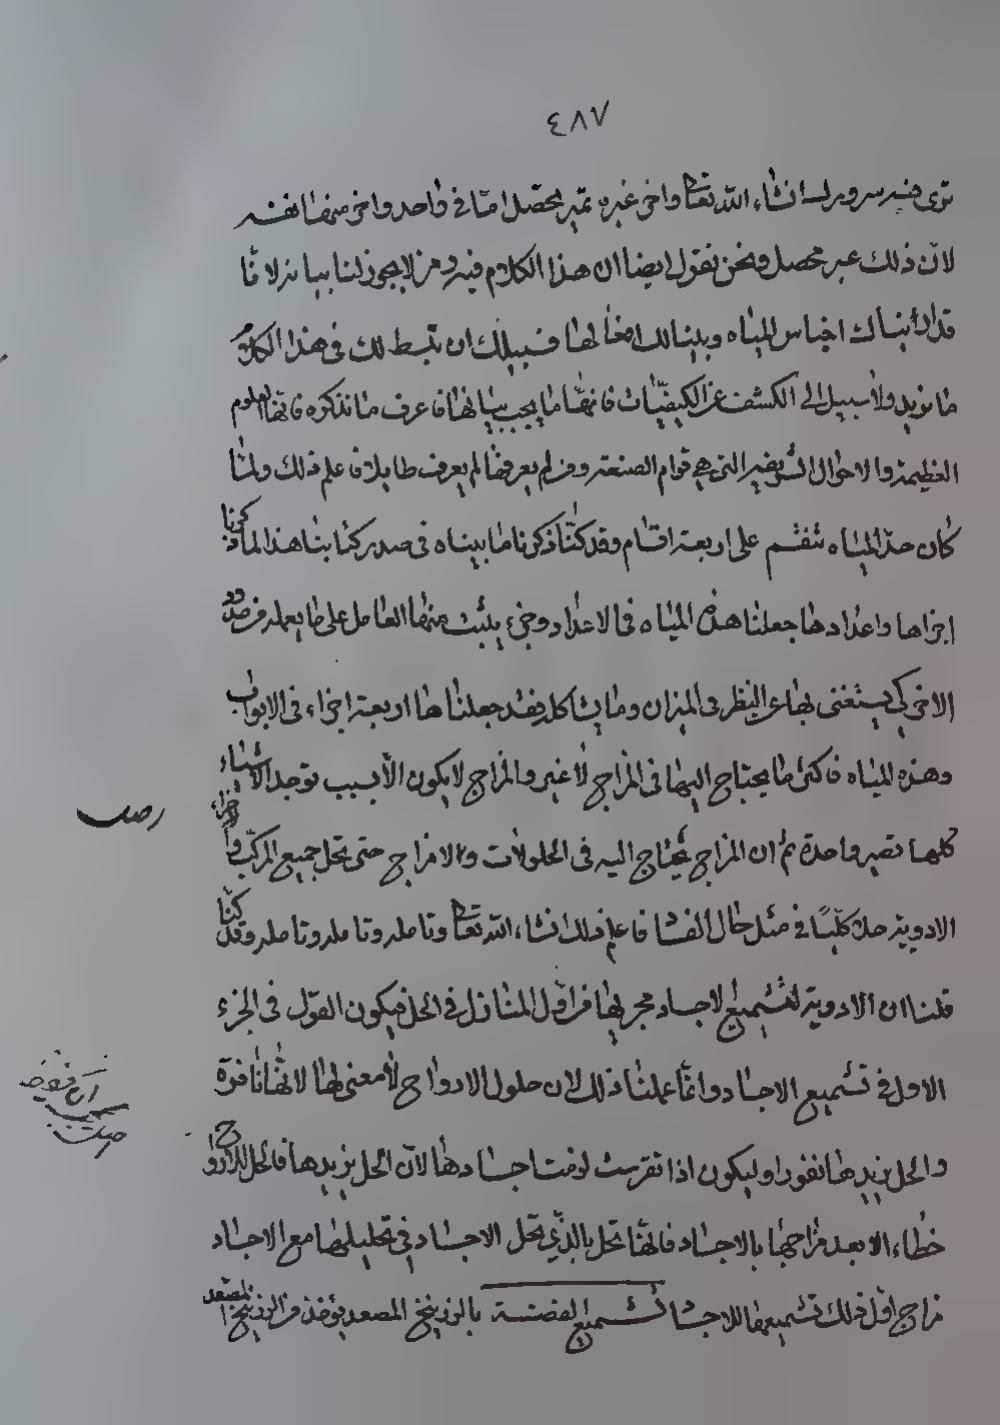 ٤٨٧
ترى فيه سرورك انشاء الله تعالى واخر غيره ثم يحصل امّا في واحد واخر منها نفسه
لانّ ذلك غير محصل ونحن نقول ايضا ان هذا الكلام فيه رمز لا يجوز لنا بيانه لانّا
قد اريناك اجناس المياه وبينا لك افعالها فسبيلك ان تبسط لك في هذا الكلام
ما نريد ولا سبيل الى الكشف عن الكيفيّات فانهّا ما يجب بيانها فاعرف ما نذكره فانّها العلوم
العظيمة والاحوال الشريفة التي هي قوام الصنعة ومن لم يعرفها لم يعرف طايلا فاعلم ذلك ولمّا
كان حدّ المياه تنقسم على اربعة اقسام وقد كنّا ذكرنا ما بيناه في صدر كتابنا هذا الما ذكرنا
اجزاها واعدادها جعلنا هذه المياه في الاعداد وخيء يثبت منها العامل على ما يعمله من حدود
الاخر كي يستغنى بها عن النظر في الميزان وما يشاكله فقد جعلناها اربعة اجزاء في الابواب
وهذه المياه فاكثر ما يحتاج اليها في المزاج لا غير والمزاج لا يكون الّا بسبب توجد الاشياء
كلها تصير واحدة ثم ان المزاج يحتاج اليه في الحلولات والامزاج حتى تحل جميع المركّب واجزاء
الادوية حلا كلّيًا في مثل حال الفشا فاعلم ذلك انشاء الله تعالى وتأمله وتأمله وتأمله وقد كنّا
قلنا ان الادوية لتشميع الاجساد مجر بها من اوّل المنازل في الحل فيكون القول في الجزء
الاول في تشميع الاجساد وانّما عملنا ذلك لان حلول الارواح لا معنى لها لانّها نافرة
والحل يزيدها نفورا وليكون اذا نفرت لوقت اجسادها لانّ الحل يزيدها فالحل للارواح
خطاء الا بعد مزاجها بالاجساد فانّها تحل بالذي تحل الاجساد في تحليلها مع الاجساد
مزاج اوّل ذلك تشميعها للاجساد تشميع الفضة بالزرنيخ المصعد يؤخذ من الزرنيخ المصعد